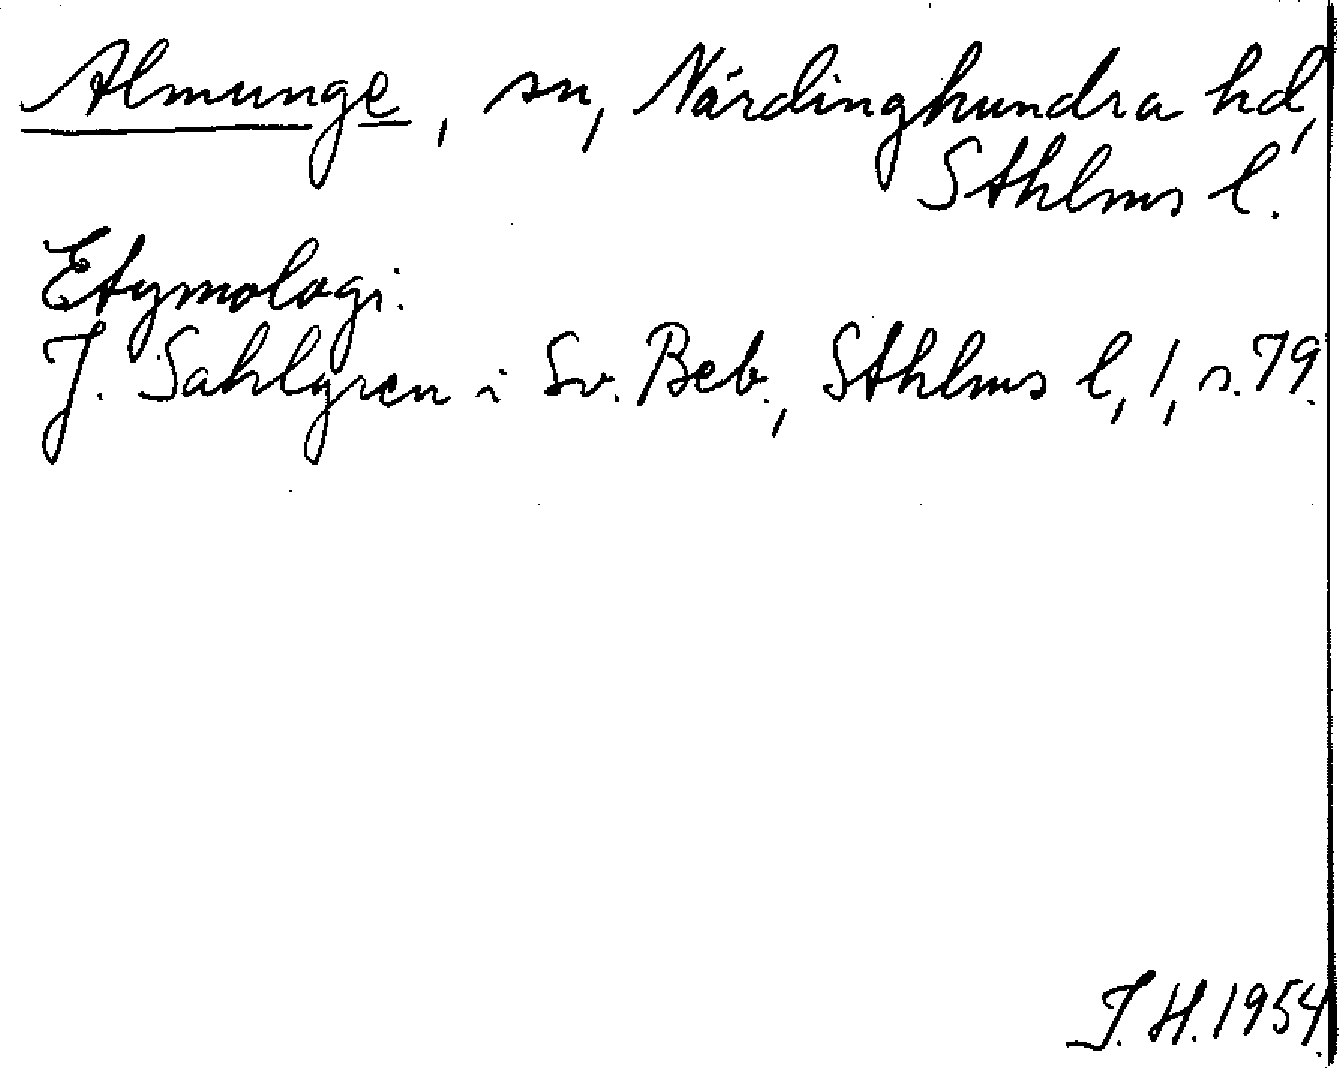 Almunge, sn, Närdinghundra hd,
Sthlms l.
Etymologi.
J. Sahlgren i Sv. Beb., Sthlms l, 1, s. 79.
J. H. 1954.